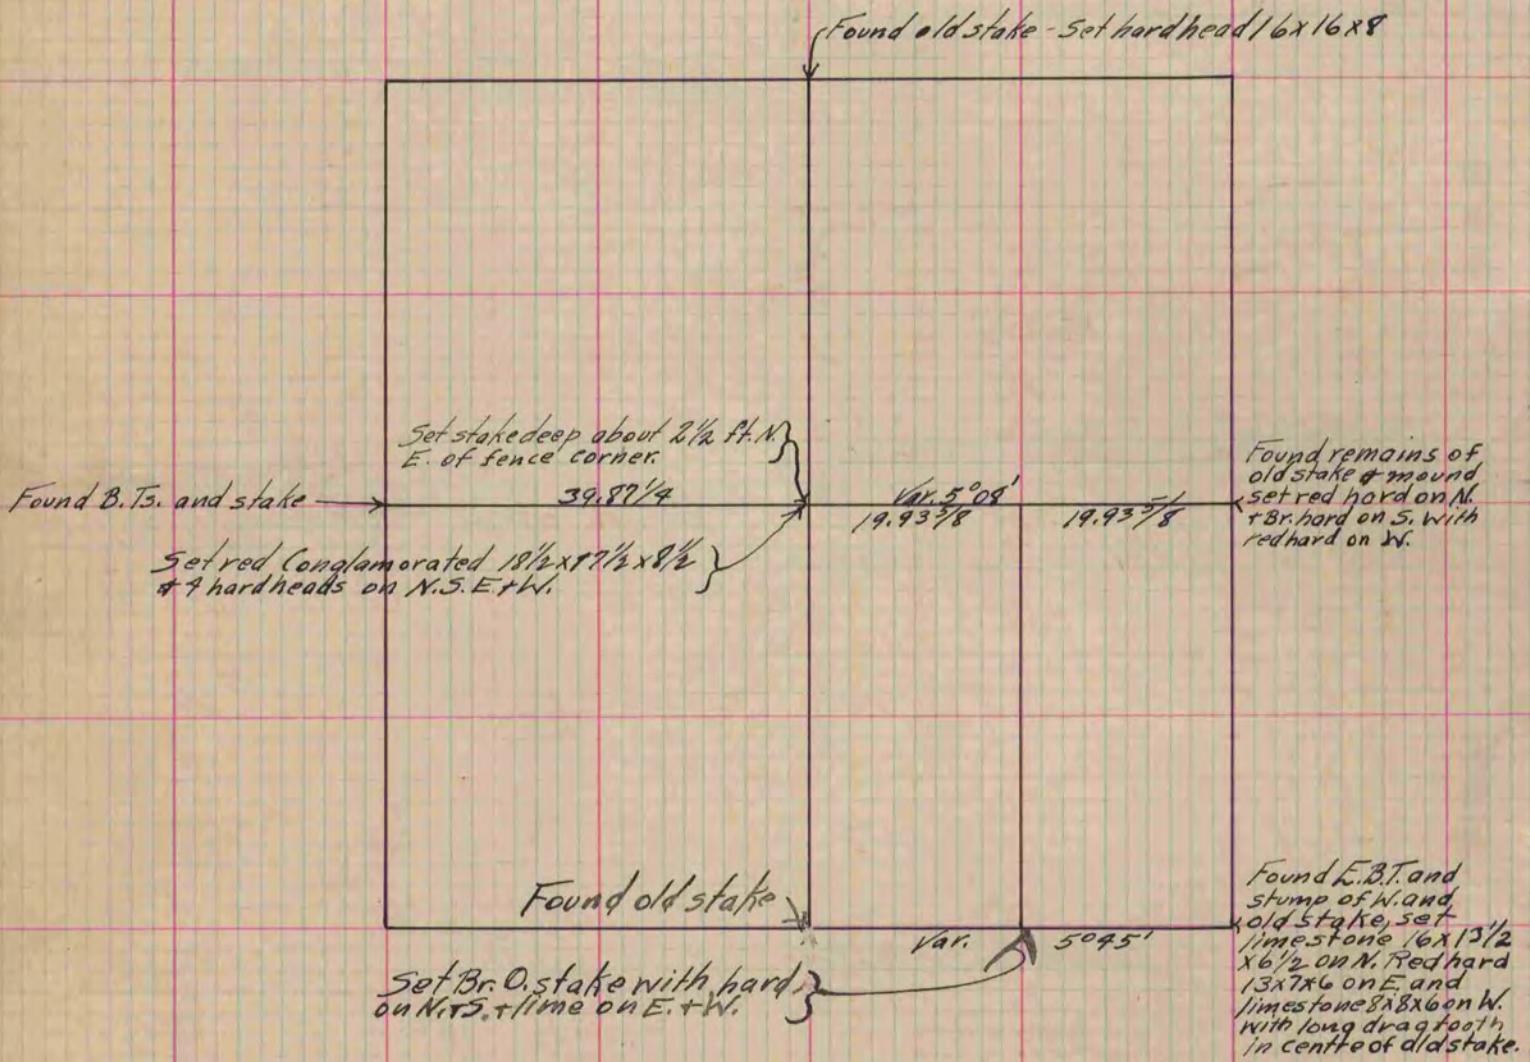 Found old stake - Set hardhead 16x16x8
Set stake deep about 2 1/2 ft. N.
E. of fence corner.
Found B.Ts. and stake
39.87 1/4
Var. 5°08'
19.93 5/8
19.93 5/8
Found remains of
old stake & mound
set red hard on N.
+ Br. hard on S. with
red hard on W.
Set red Conglamorated 18 1/2 x 17 1/2 x 8 1/2
& 4 hardheads on N.S.E. + W.
Found old stake
Var. 5°45'
Set Br. O. stake with hard
on N. + S. + lime on E. + W.
Found E.B.T. and
stump of W. and
old stake, set
limestone 16x13 1/2
x6 1/2 on N. Red hard
13x7x6 on E. and
limestone 8x8x6 on W.
with long drag tooth
in centre of old stake.